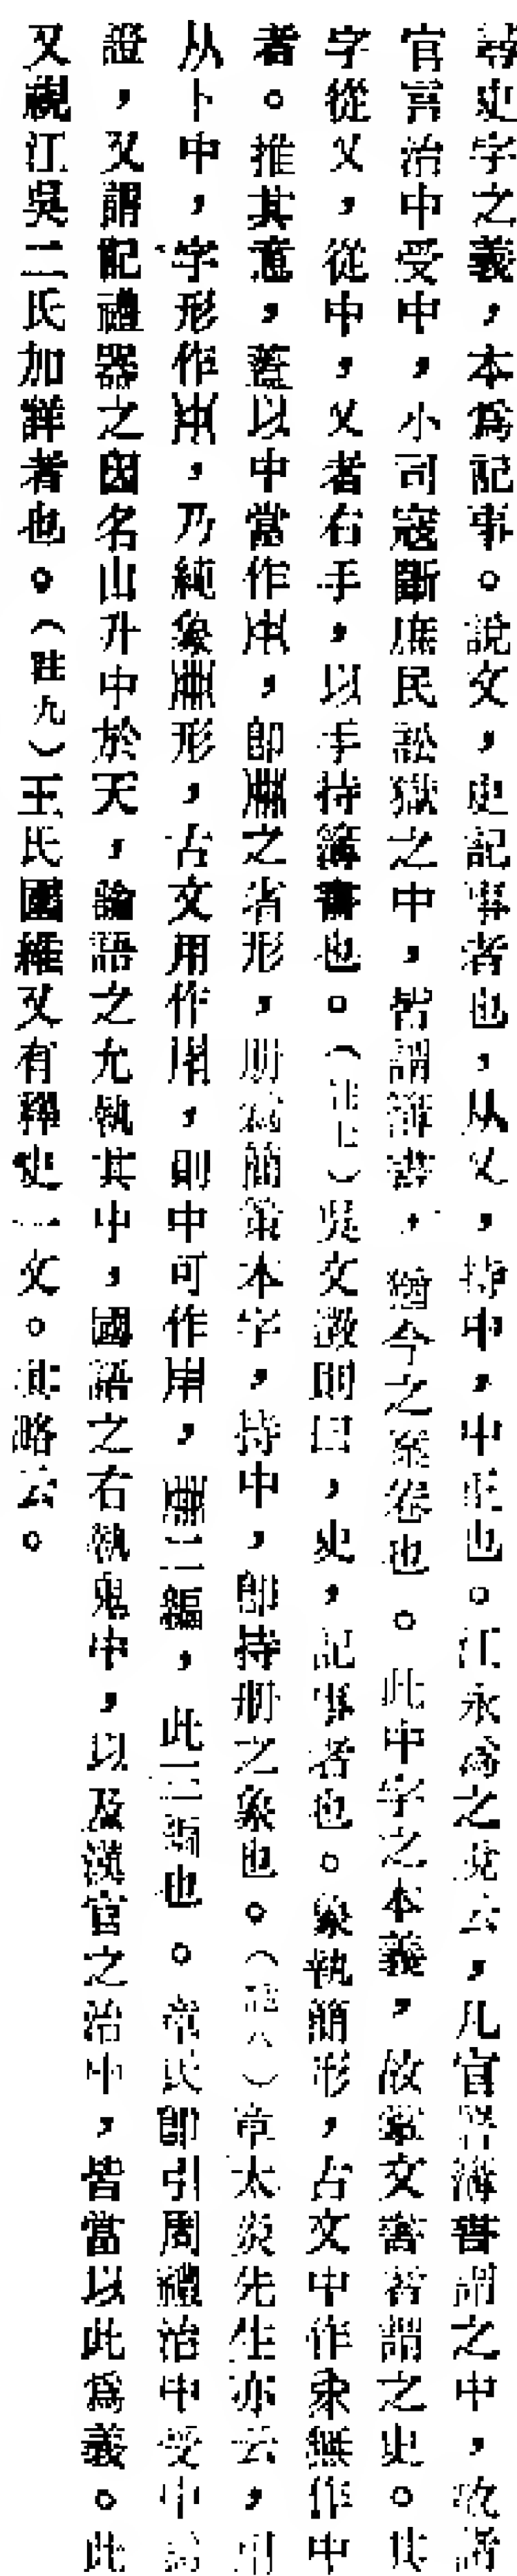 尋史字之義，本爲記事。說文，史記事者也，从又，持中，中正也。江永爲之說云，凡官署簿書謂之中，故諸
官言治中受中，小司寇斷庶民訟獄之中，皆謂簿書，猶今之案卷也。此中字之本義，故掌文書者謂之史。其
字從又，從中，又者右手，以手持簿書也。（註七）吳大澂則曰，史，記事者也。象執簡形，古文中作 無作中
者。推其意，蓋以中當作 ，卽 之省形，册爲簡策本字，持中，卽持册之象也。（註八）章太炎先生亦云，用
从卜中，字形作 ，乃純象 形，古文用作 ，則中可作 ， 二編，此三編也。章氏卽引周禮治中受中爲
證，又謂記禮器之因名山升中於天，論語之允執其中，國語之右執鬼中，以及漢官之治中，皆當以此爲義。此
又視江吳二氏加詳者也。（註九）王氏國維又有釋史一文。其略云。